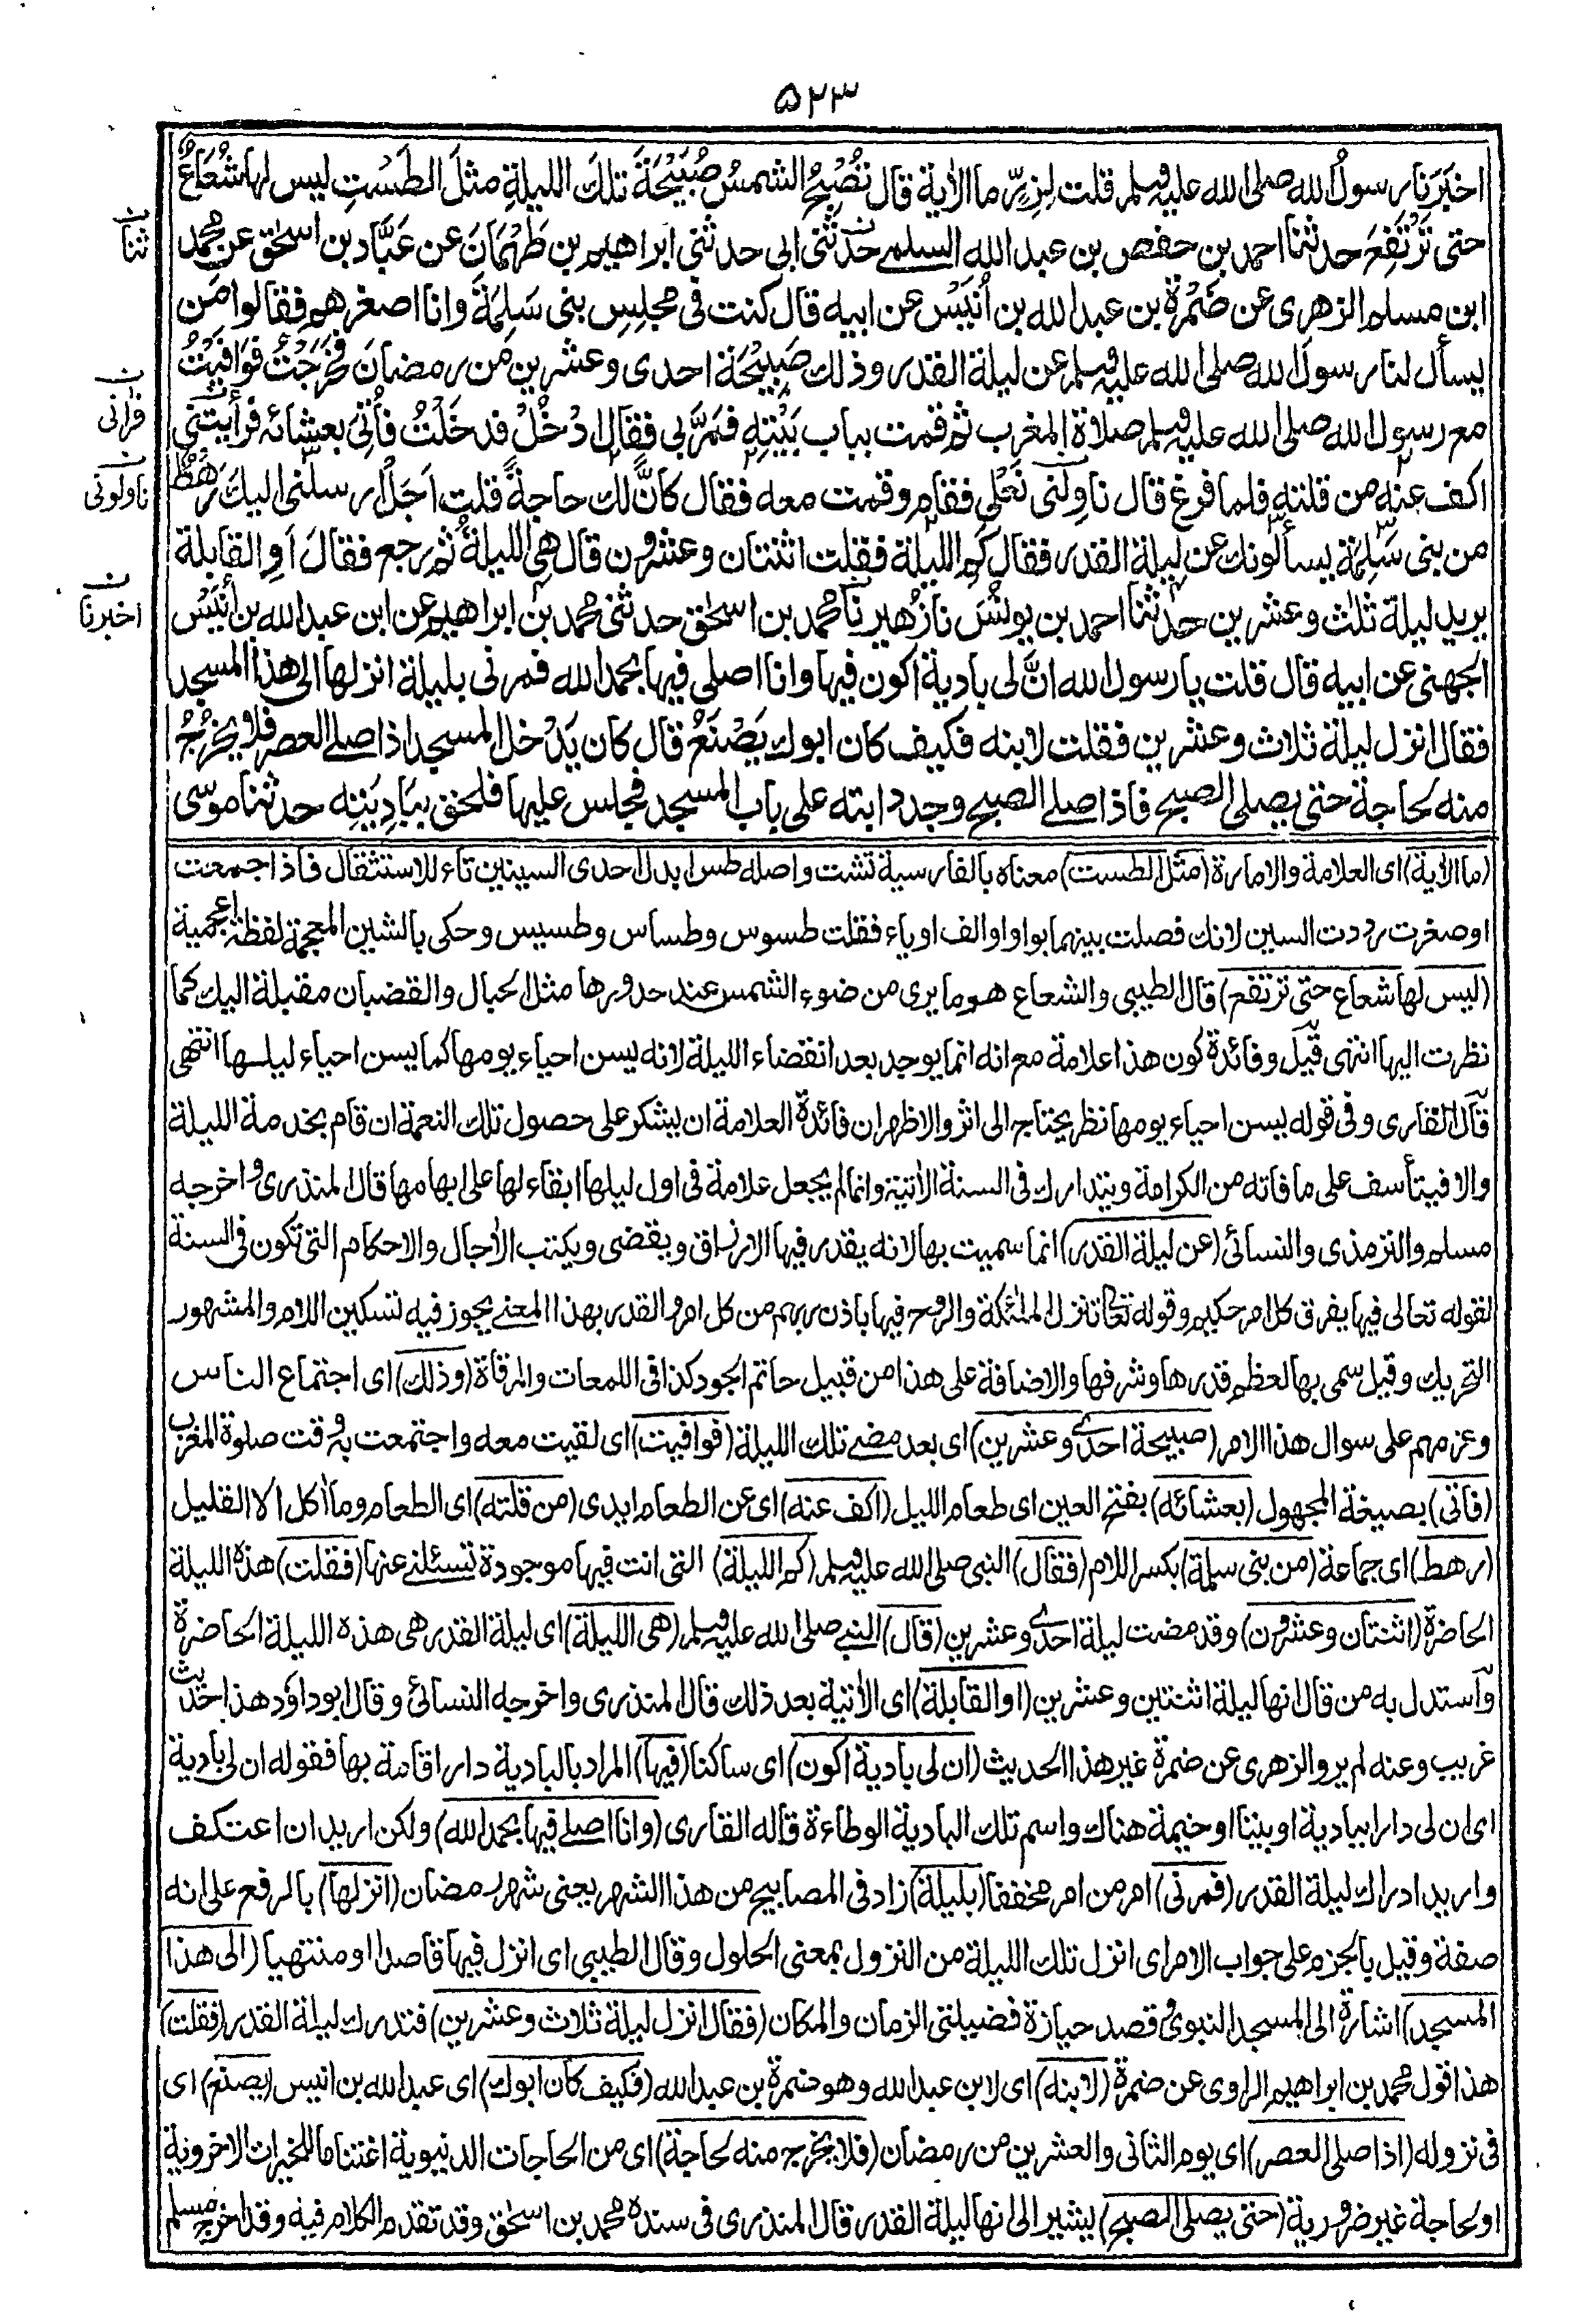 ٥٢٣
اخبَرَنا رسولُ الله صلى الله عليه وسلم قلت لِزِرٍّ ما الاٰية قال تُصْبِحُ الشمسُ صُبَيْحَةَ تلك الليلةِ مثلَ الطَسْتِ ليس لها شُعَاعٌ
حتى تَرْتَفِعَ حدثنا احمد بن حفص بن عبد الله السلمي حدثني ابي حدثني ابراهيم بن طَهْمَانَ عن عَبَّاد بن اسحٰق عن محمد
ثنا
ابن مسلم الزهري عن ضَمْرَة بن عبد الله بن أُنَيْس عن ابيه قال كنت في مجلِسِ بني سَلِمَةَ وانا اصغرهم فقالوا مَن
يسأل لنا رسولَ الله صلى الله عليه وسلم عن ليلة القدر وذلك صَبِيْحَةَ احدى وعشرين من رمضانَ فخَرَجْتُ فوَافَيْتُ
مع رسول الله صلى الله عليه وسلم صلاةَ المغرب ثم قمت بباب بَيْتِهِ فمَرَّ بي فقال ادْخُلْ فدخَلْتُ فأُتِيَ بعشائه فرأيتُني
فرآني
اكف عنه من قلته فلما فرغ قال ناوِلْني نَعْلي فقام وقمت معه فقال كانَّ لك حاجةً قلت اَجَلْ ارسلني اليك رَهْطٌ
ناولوني
من بني سَلِمَة يسألونك عن ليلة القدر فقال كم الليلة فقلت اثنتان وعشرون قال هِيَ الليلةُ ثم رجع فقالَ اَوِ القابلة
يريد ليلة ثلٰث وعشرين حدثنا احمد بن يونُسَ نا زُهير نا محمد بن اسحٰق حدثني محمد بن ابراهيم عن ابن عبد الله بن أُنَيْس
اخبرنا
الجهني عن ابيه قال قلت يا رسول الله انَّ لي بادية اكون فيها وانا اصلي فيها بحمد الله فمرني بليلة انزلها الى هذا المسجد
فقال انزل ليلة ثلاث وعشرين فقلت لابنه فكيف كان ابوك يَصْنَعُ قال كان يَدْخل المسجد اذا صلى العصر فلا يَخْرُجُ
منه لحاجة حتى يصلي الصبح فاذا صلى الصبح وجد دابته على باب المسجد فجلس عليها فلحق بِبَادِيَتِه حدثنا موسى
(ما الاٰية) اى العلامة والامارة (مثل الطست) معناه بالفارسية تشت واصله طس ابدل احدى السينين تاء للاستثقال فاذا جمعت
اوصغرت رددت السين لانك فصلت بينهما بواو او الف او ياء فقلت طسوس وطساس وطسيس وحكى بالشين المعجمة لفظة اعجمية
(ليس لها شعاع حتى ترتفع) قال الطيبي والشعاع هو ما يرى من ضوء الشمس عند حدورها مثل الحبال والقضبان مقبلة اليك كما
نظرت اليها انتهى قيل وفائدة كون هذا علامة مع انه انما يوجد بعد انقضاء الليلة لانه يسن احياء يومها كما يسن احياء ليلها انتهى
قال القاري وفي قوله يسن احياء يومها نظر يحتاج الى اثر والاظهر ان فائدة العلامة ان يشكر على حصول تلك النعمة ان قام بخدمة الليلة
والا فيتأسف على ما فاته من الكرامة ويتدارك في السنة الاٰتية وانما لم يجعل علامة في اول ليلها ابقاء لها على ابهامها قال المنذري واخرجه
مسلم والترمذي والنسائي (عن ليلة القدر) انما سميت بها لانه يقدر فيها الارزاق ويقضى ويكتب الاٰجال والاحكام التي تكون في السنة
لقوله تعالى فيها يفرق كل امر حكيم وقوله تعالى تنزل الملٰئكة والروح فيها باذن ربهم من كل امر والقدر بهذا المعنى يجوز فيه تسكين اللام والمشهور
التحريك وقيل سمى بها لعظم قدرها وشرفها والاضافة على هذا من قبيل حاتم الجود كذا في اللمعات والمرقاة (وذلك) اى اجتماع الناس
وعزمهم على سوال هذا الامر (صبيحة احدى وعشرين) اى بعد مضى تلك الليلة (فوافيت) اى لقيت معه واجتمعت به وقت صلوة المغرب
(فاتي) بصيغة المجهول (بعشائه) بفتح العين اى طعام الليل (اكف عنه) اى عن الطعام ايدى (من قلته) اى الطعام وما اٰكل الا القليل
(رهط) اى جماعة (من بني سلمة) بكسر اللام (فقال) النبي صلى الله عليه وسلم (كم الليلة) التي انت فيها موجودة تسئلني عنها (فقلت) هذه الليلة
الحاضرة (اثنتان وعشرون) وقد مضت ليلة احدى وعشرين (قال) النبي صلى الله عليه وسلم (هي الليلة) اى ليلة القدر هي هذه الليلة الحاضرة
واستدل به من قال انها ليلة اثنتين وعشرين (او القابلة) اى الاٰتية بعد ذلك قال المنذري واخرجه النسائي وقال ابوداود هذا حديث
غريب وعنه لم يرو الزهري عن ضمرة غير هذا الحديث (ان لي بادية اكون) اى ساكنا (فيها) المراد بالبادية دار اقامة بها فقوله ان لي بادية
اى ان لي دارا ببادية او بيتا او خيمة هناك واسم تلك البادية الوطاءة قاله القاري (وانا اصلي فيها بحمد الله) ولكن اريد ان اعتكف
واريد ادراك ليلة القدر (فمرني) امر من امر مخففا (بليلة) زاد في المصابيح من هذا الشهر يعني شهر رمضان (انزلها) بالرفع على انه
صفة وقيل بالجزم على جواب الامر اى انزل تلك الليلة من النزول بمعنى الحلول وقال الطيبي اى انزل فيها قاصدا او منتهيا (الى هذا
المسجد) اشارة الى المسجد النبوي وقصد حيازة فضيلتي الزمان والمكان (فقال انزل ليلة ثلاث وعشرين) فتدرك ليلة القدر (فقلت)
هذا قول محمد بن ابراهيم الراوي عن ضمرة (لابنه) اى لابن عبد الله وهو ضمرة بن عبد الله (فكيف كان ابوك) اى عبد الله بن انيس (يصنع) اى
في نزوله (اذا صلى العصر) اى يوم الثاني والعشرين من رمضان (فلا يخرج منه لحاجة) اى من الحاجات الدنيوية اغتناما للخيرات الاخروية
او لحاجة غير ضرورية (حتى يصلي الصبح) يشير الى انها ليلة القدر قال المنذري في سنده محمد بن اسحٰق وقد تقدم الكلام فيه وقد اخرج مسلم